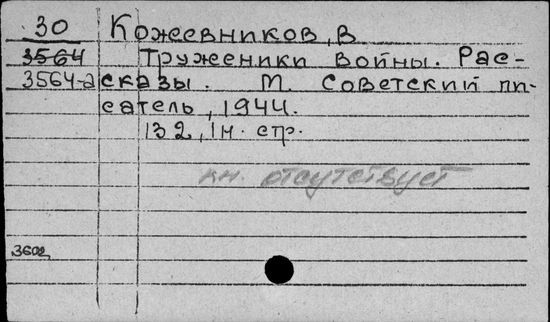 30 Кожевников, В
3564 Труженики войны. Рас-
3564-а сказы. М. Советский пи-
сатель, 1944.
132, 1н. стр.
кн. отсутствует
3602